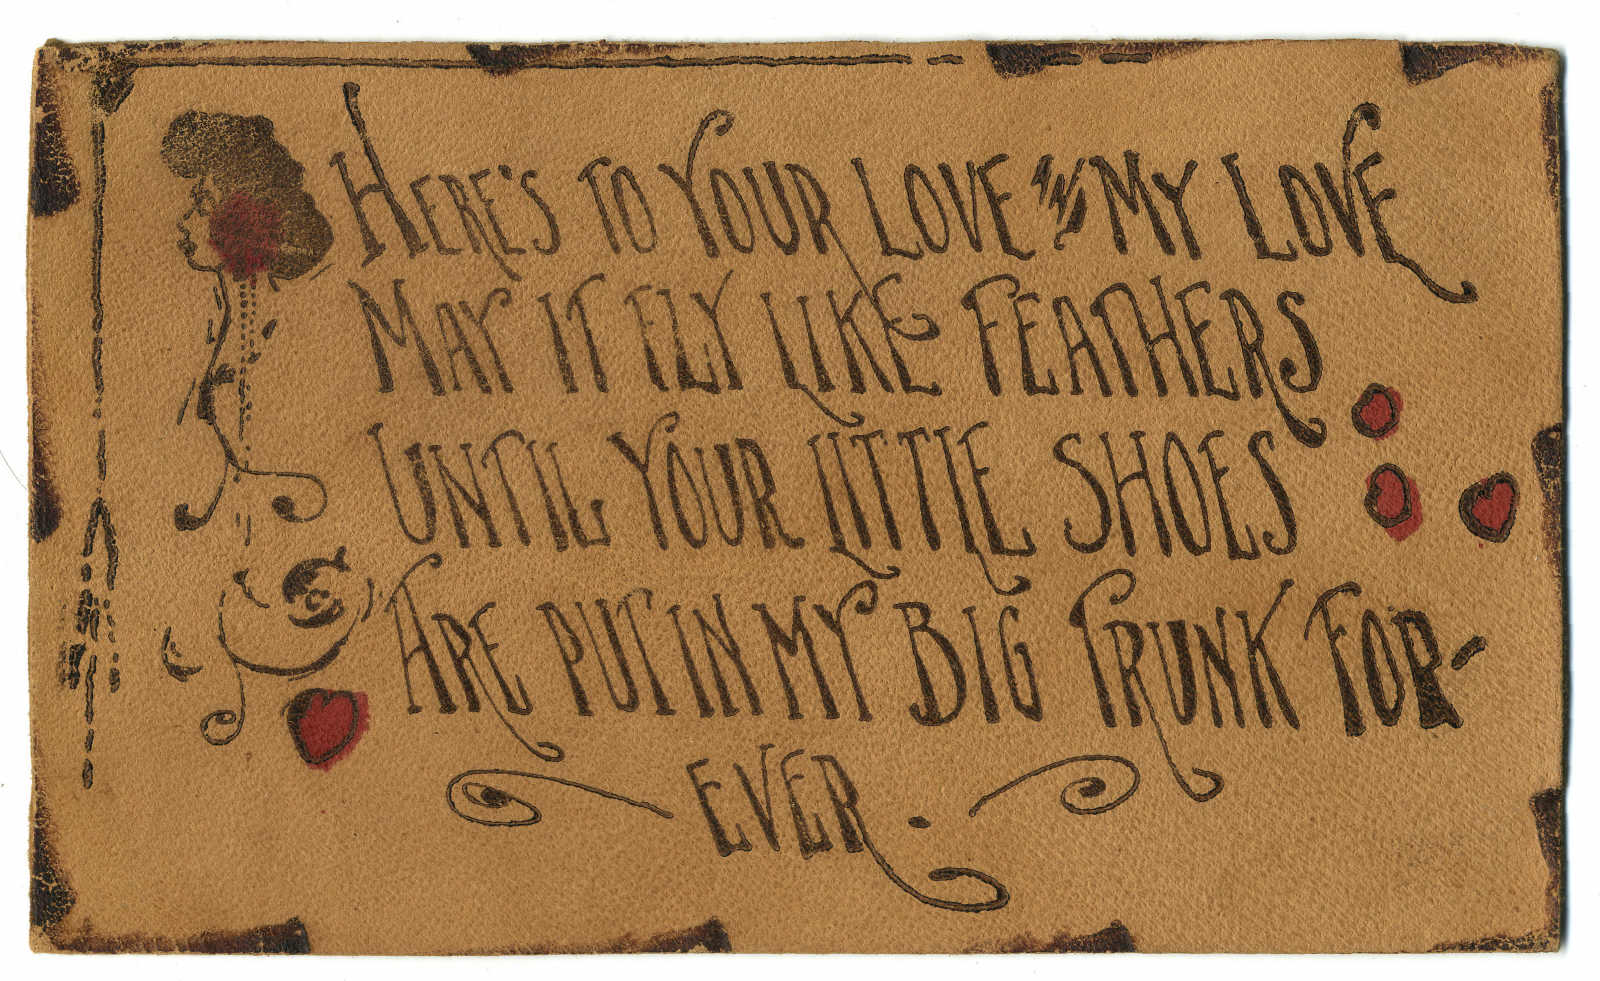 HERE'S TO YOUR LOVE AND MY LOVE
MAY IT FLY LIKE FEATHERS
UNTIL YOUR LITTLE SHOES
ARE PUT IN MY BIG TRUNK FOR-
EVER.